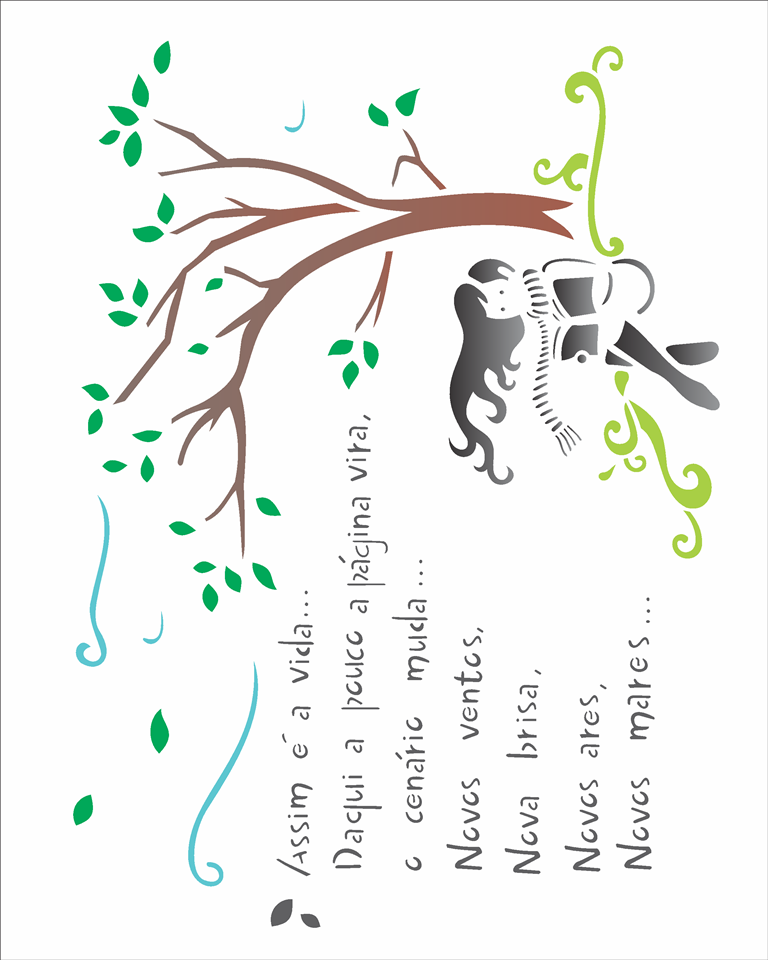 Assim é a vida...
Daqui a pouco a página vira,
o cenário muda...
Novos ventos,
Nova brisa,
Novos ares,
Novos mares...